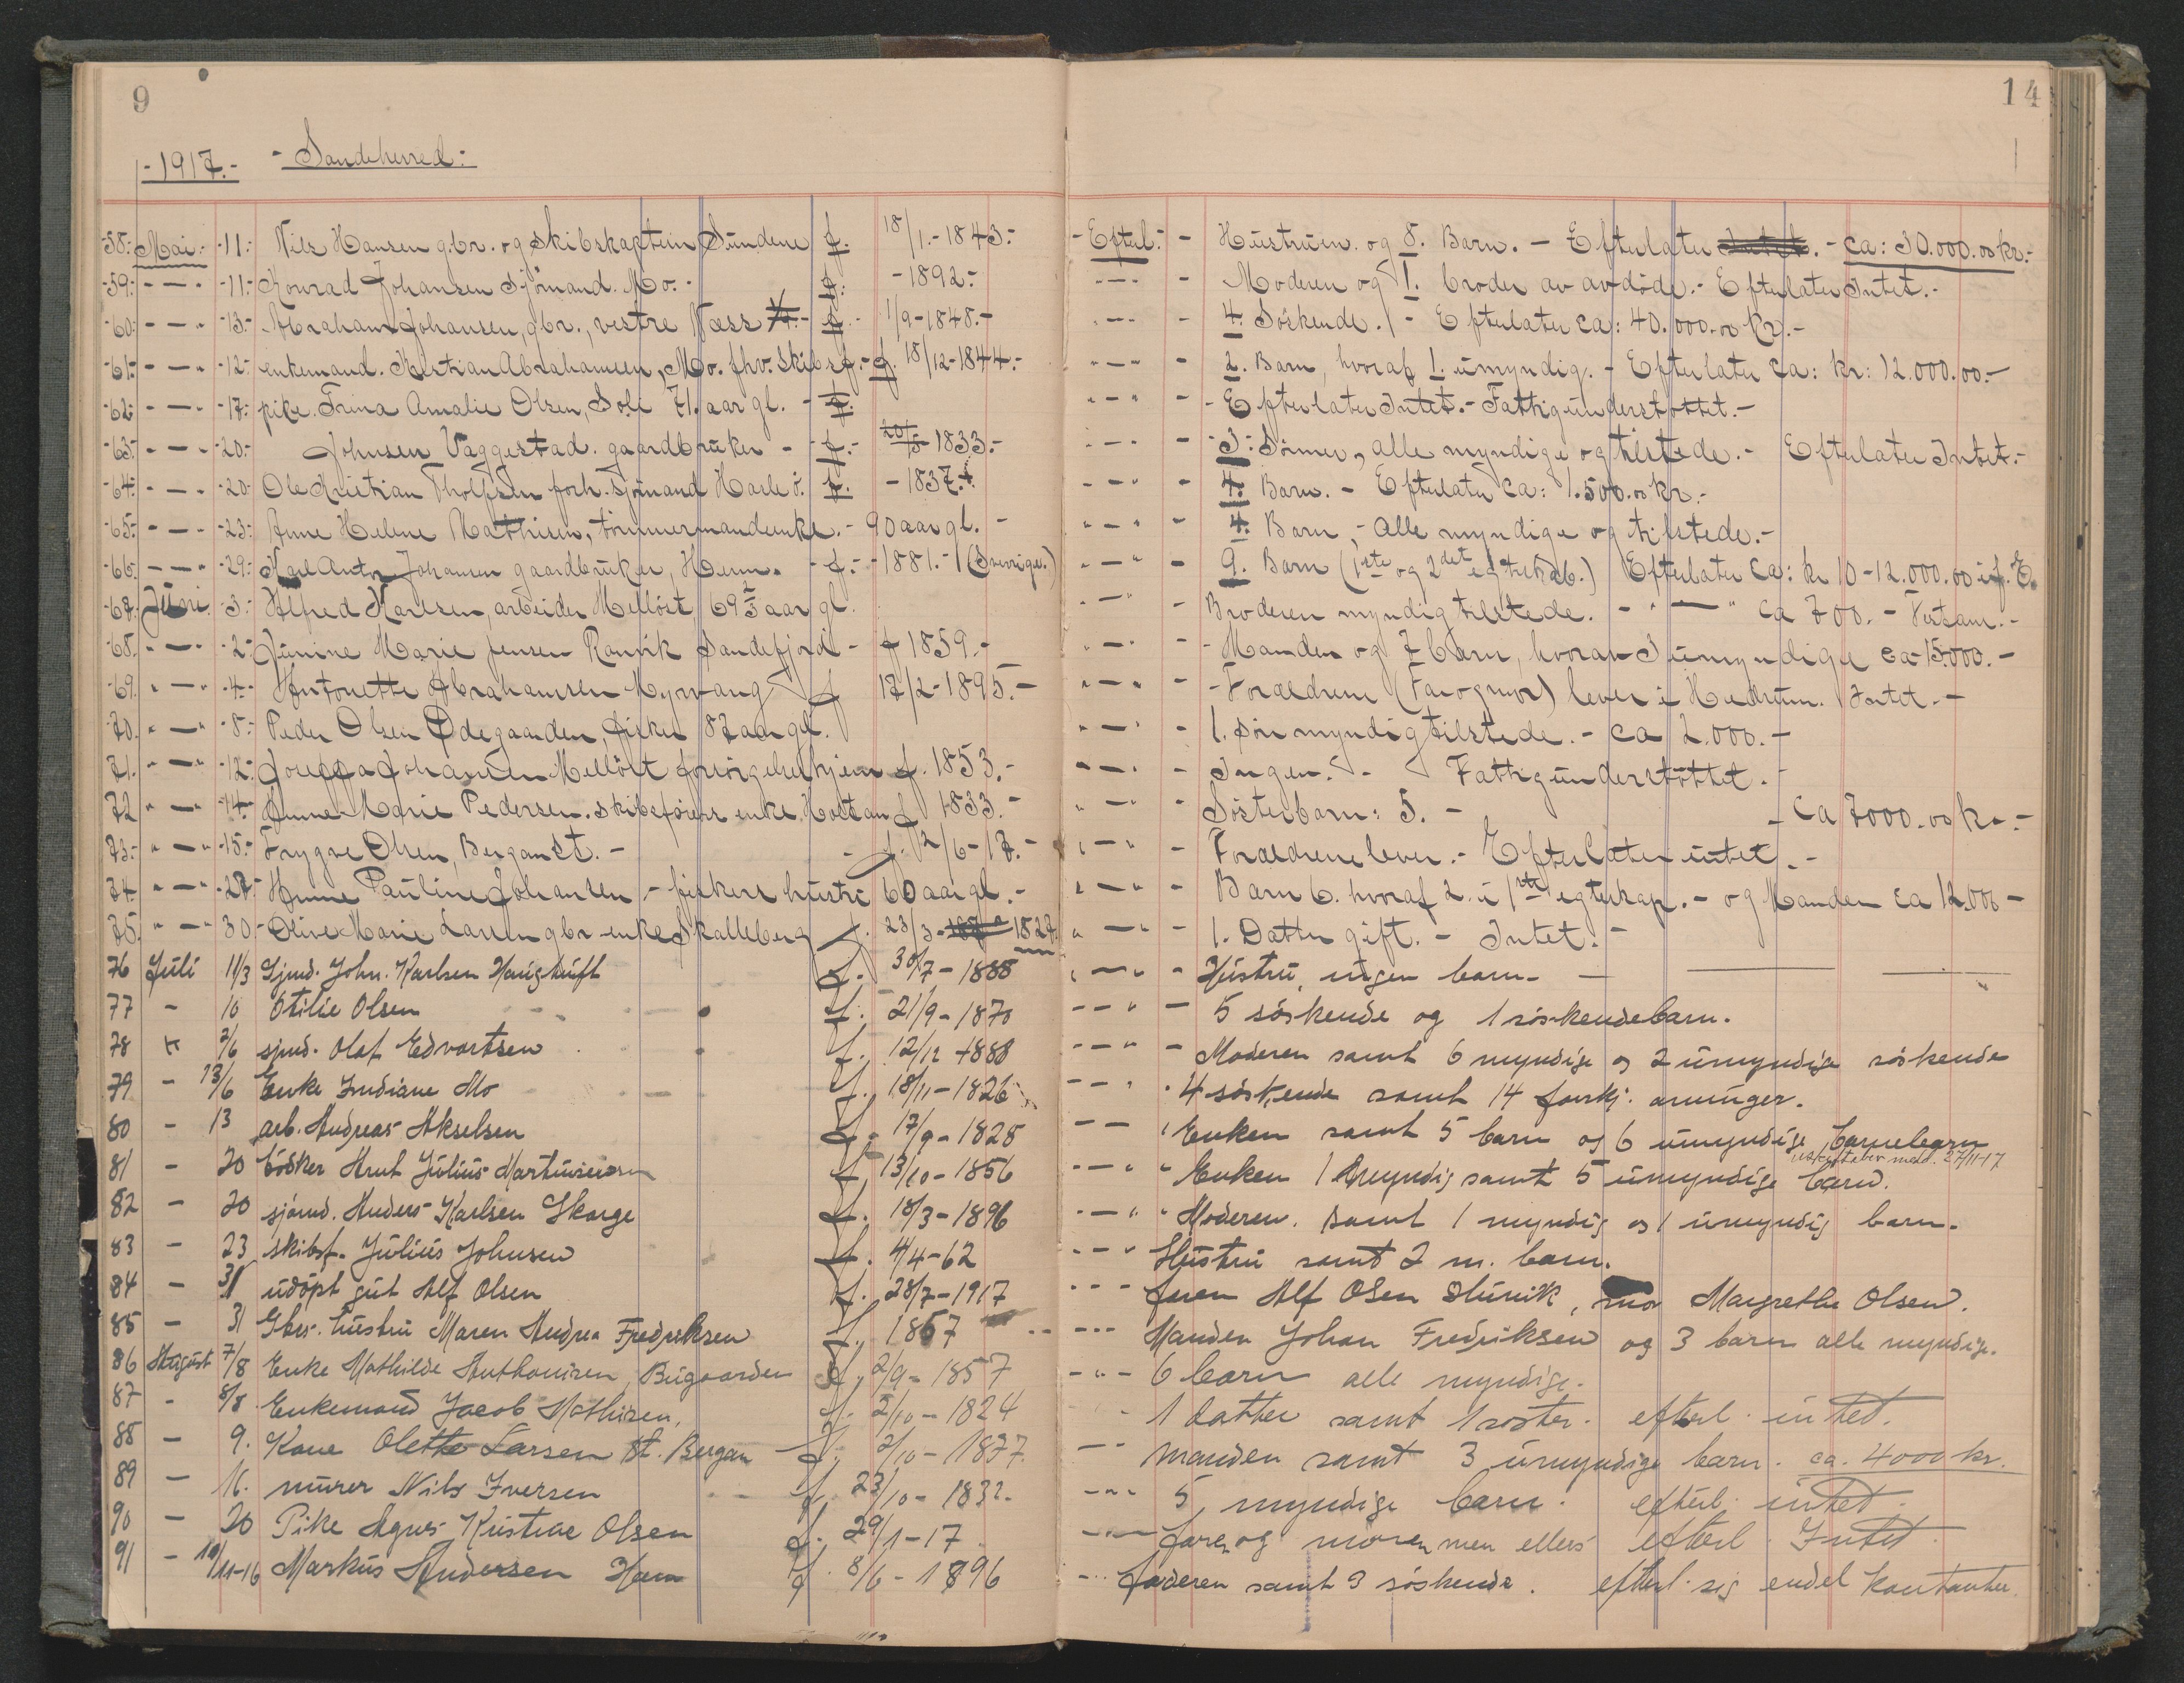 9
14
-1917.- - Sandeherred:-
-58: Mai:- -11:- Nils Hansen gbr. og Skibskaptein Sundene f. 18/1.-1843:- -Efterl.- - Hustruen og 8. Barn. - Efterlater Intet. - ca: 30.000.00 kr.-
-59:- -"- -11:- Konrad Johansen Sjömand. Mo.- f. -1892:- -"- - Moderen og 1. broder av avdöde.- Efterlater Intet.-
-60:- -"- -13.- Abraham Johansen, gbr., vestre Næss f.- 1/9-1848.- -"- - 4. Söskende. - Efterlater ca: 40.000.00 kr.-
-61:- -"- -12:- enkemand. Kristian Abrahamsen, Mo. fhv. Skibsf.- f. 18/12-1844.- -"- - 2. Barn, hvoraf 1. umyndig. - Efterlater ca: kr: 12.000.00.-
-62:- -"- -17:- pike. Trina Amalie Olsen, Soli 71. aar gl. - f. -"- - Efterlater Intet.- Fattigunderstöttet.-
-63:- -"- -20:- Johnsen Vaggestad. gaardbruker - f.- 20/5-1833.- -"- - 3: Sönner, alle myndige og tilstede.- Efterlater Intet.-
-64:- -"- -20- Ole Kristian Tholfsen forh. sjömand Hasle ö. f. -1837.- -"- - 4. Barn. - Efterlater ca: 1.500.00 kr.-
-65:- -"- -23:- Anne Helene Mathisen, tömmermandenke.- 90 aar gl. - -"- - 4. Barn, - alle myndige og tilstede.-
-66:- -"- -29:- Karl Anton Johansen gaardbruker, Hemn. - f.- -1881.- (Sverige.) -"- - 9. Barn (1ste og 2det egteskab.) Efterlater ca: kr 10-12.000.00 if. E.
-67. Juni -3:- Alfred Karlsen, arbeider Mellöst, 69 2/3 aar gl. -"- - Broderen myndig tilstede. - " - " ca 700. -
-68. -"- -2:- Junine Marie Jensen Ranvik Sandefjord - f 1859.- -"- - Manden og 7 barn, hvorav 3 umyndige ca 15.000.-
-69. -"- -4- Antonette Abrahamsen Myrvang f 17/2-1895.- -"- - Forældrene (Far og mor) lever i Hedrum. Intet.-
70. -"- -8:- Peder Olsen Ödegaarden, fisker 87 aar gl. -"- - 1. sön myndig tilstede.- ca 2.000.-
71. -"- -12:- Joseffa Johansen Mellöst forsörgelseshjem f. 1853.- -"- - Ingen. - Fattigunderstöttet.-
72 -"- -14- Anne Marie Pedersen. skibsförers enke. Holtan f 1833.- -"- - Sösterbarn: 5. - - ca 7000.00 kr.-
73.- -"- -15.- Trygve Olsen, Bergan St. - f. 12/6-17.- -"- - Forældrene lever.- Efterlater intet.-
74 -"- -27.- Anne Pauline Johansen - fiskers hustru 60 aar gl.- -"- - Barn 6. hvoraf 2 i 1ste egteskap.- og Manden ca 12.000-
75. -"- 30.- Olive Marie Larsen gbr. enke Skalleberg f. 23/3- 1827. -"- - 1. Datter gift. - Intet.-
76 Juli 11/3 Sjmd. John. Karlsen Haugtuft f. 30/7-1888 -"- - Hustru, ingen barn. -
77 - 10 Otilie Olsen f. 21/9-1870 -"- - 5 söskende og 1 söskendebarn.
78 2/6 sjmd. Olaf Edvartsen f. 12/12-1888 -"- - Moderen samt 6 myndige og 2 umyndige söskende
79 - 13/6 Enke Indiane Mo f. 18/11-1826 -"- 4 söskende samt 14 forskj. arvinger.
80 - 13 arb. Andreas Akselsen f. 17/9-1828 -- Enken samt 5 barn og 6 umyndige barnebarn
81 - 20 Bödker Arnt Julius Martinsen f. 13/10-1856 -"- Enken 1 myndig samt 5 umyndige barn. 27/11-17
82 - 20 sjömd. Anders Karlsen Skorge f. 18/3-1896 -"- Moderen. samt 1 myndig og 1 umyndig barn.
83 - 23 skibsf. Julius Johnsen f. 4/4-62 -"- Hustru samt 2 m. barn.
84 - 31 udöpt gut Alf Olsen f. 28/7-1917 -"- faren Alf Olsen, mor Margrethe Olsen.
85 - 31 Gbr. hustru Maren Andrea Fredriksen f. 1867 -"- Manden Johan Fredriksen og 3 barn alle myndige.
86 August 7/8 Enke Mathilde Anthonisen, Bugaarden f. 2/9-1857 -"- 6 barn alle myndige.
87 - 8/8 Enkemand Jacob Mathisen, f. 2/10-1824 1 datter samt 1 söster. efterl. intet.
88 - 9. Kone Olette Larsen St. Bergan f. 2/10-1877. -"- manden samt 3 umyndige barn. ca. 4000 kr.
89 - 16. murer Nils Iversen f. 23/10-1832. -"- 5 myndige barn. efterl. intet.
90 - 20 Pike Agnes Kristine Olsen f. 29/1-17 -"- faren og moren men ellers efterl. Intet.
91 - 19/11-16 Markus Andersen Ham f. 8/6-1896 -"- faderen samt 3 söskende. efterl. sig endel kontanter.